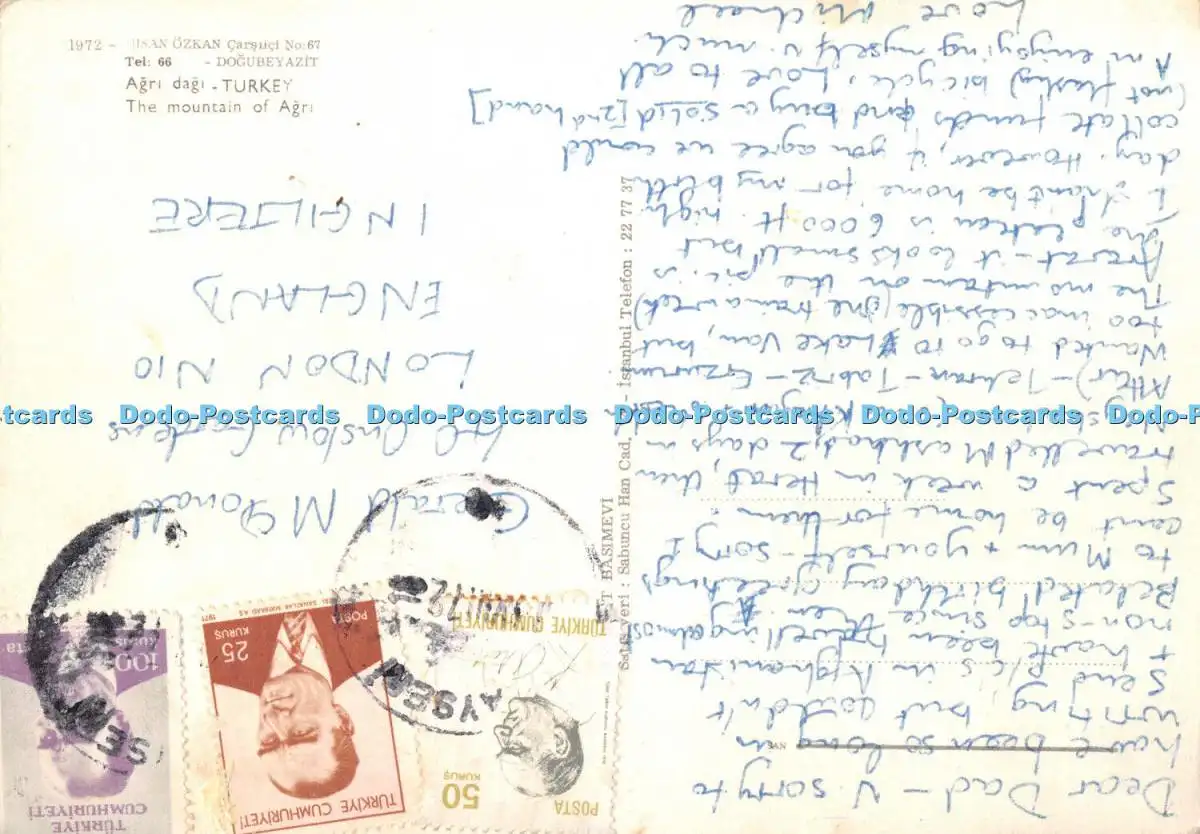 1972 - İHSAN ÖZKAN Çarşıiçi No:67
Tel: 66 - DOĞUBEYAZİT
Ağrı dağı - TURKEY
The mountain of Ağrı
Dear Dad - V sorry to
have been so long in
writing, but couldn't
send P/Cs in Afghanistan
+ have been travelling almost
non-stop since then
Belated birthday greetings
to Mum + yourself - sorry I
cant be home for them.
Spent a week in Herat, then
travelled Mashhad; 2 days in
After) - Tehran - Tabriz - Erzurum
Wanted to go to Lake Van, but
too inaccessible (one train a week)
The mountain on the pic. is
Ararat - it looks small but
the plateau is 6000 ft. high.
I shan't be home for my birth
day. However, if you agree we could
collate funds and buy a solid [2nd hand]
(not flashy) bicycle. Love to all
Am enjoying myself v. much.
Love Michael
Gerald McDonald
Onslow Gardens
LONDON N10
ENGLAND
INGILTERE
BASIMEVİ
Satış yeri : Sabuncu Han Cad. - İstanbul Telefon : 22 77 37
POSTA
50
KURUŞ
TÜRKİYE CUMHURİYETİ
TÜRKİYE CUMHURİYETİ
25
KURUŞ
POSTA
1971
TÜRKİYE
CUMHURİYETİ
100
KURUŞ
Dodo-Postcards Dodo-Postcards Dodo-Postcards Dodo-Postcards